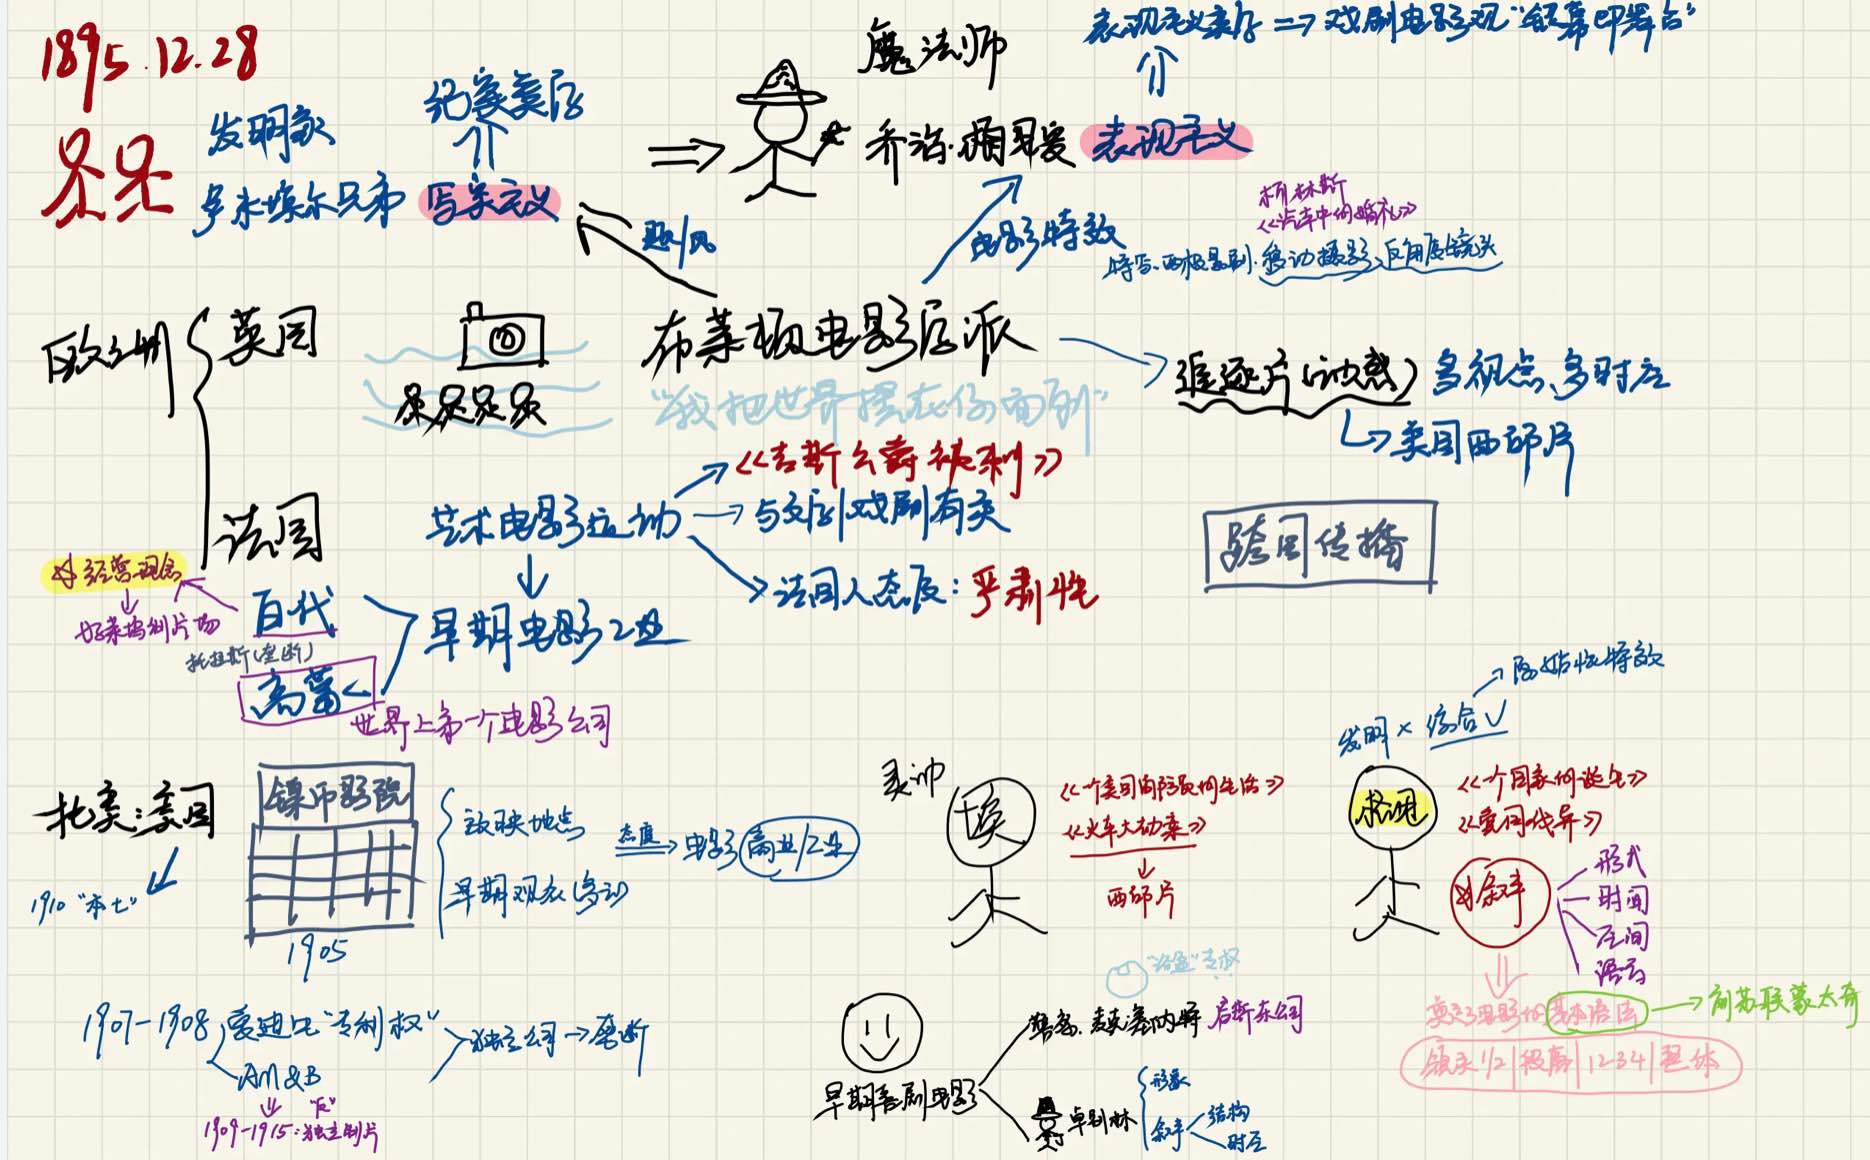 1895.12.28
发明家
卢米埃尔兄弟
纪实美学
写实主义
魔法师
乔治·梅里爱
表现主义
表现主义美学 => 戏剧电影观 "银幕即舞台"
电影特效
柯林斯
《汽车中的婚礼》
特写、两极景别、移动摄影、反角度镜头
欧洲
英国
布莱顿电影学派
"我把世界摆在你面前"
追逐片(动感) 多视点、多时空
美国西部片
法国
艺术电影运动
《吉斯公爵被刺》
与文学/戏剧有关
法国人态度:严肃性
跨国传播
经营理念
好莱坞制片场
百代
托拉斯(垄断)
高蒙
早期电影工业
世界上第一个电影公司
北美:美国
1910 "本土"
镍币影院
1905
放映地点
早期观众(劳动)
态度
电影商业/工业
美帅
埃
《一个美国消防员的生活》
《火车大劫案》
西部片
发明 × 综合 ✓
原始性特效
格里
《一个国家的诞生》
《党同伐异》
叙事
形式
时间
空间
语言
奠定电影的基本语法
前苏联蒙太奇
镜头1/2|段落|1234|整体
1907-1908 爱迪生"专利权"
AM&B
独立公司→垄断
"反"
1909-1915:独立制片
早期喜剧电影
"滑稽"专权
启斯东公司
卓别林
形象
叙事
结构
时空